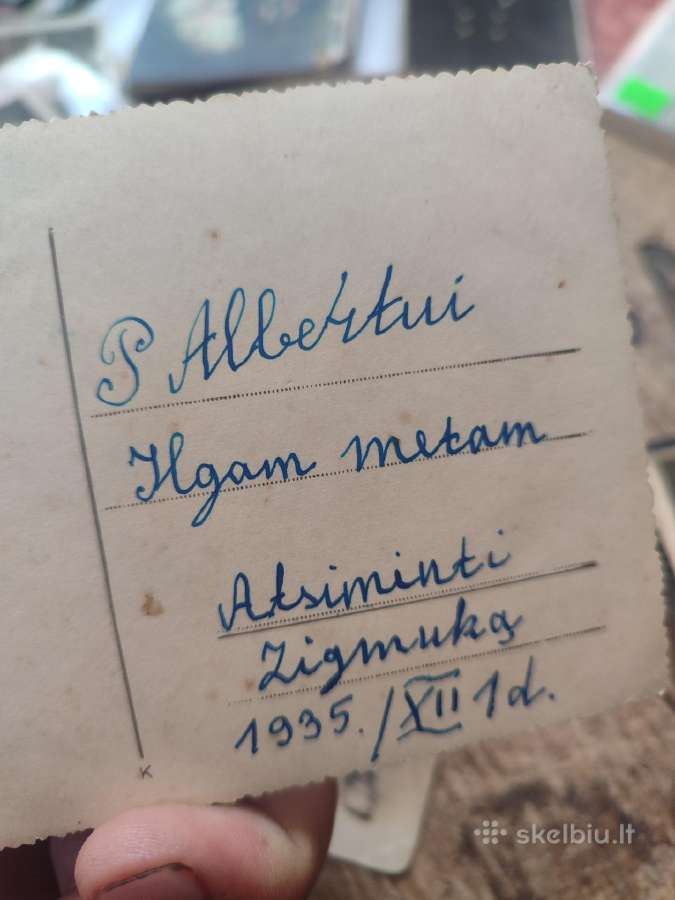 P Albertui
Ilgam metam
Atsiminti
Zigmuką
1935./XII 1d.
K
skelbiu.lt